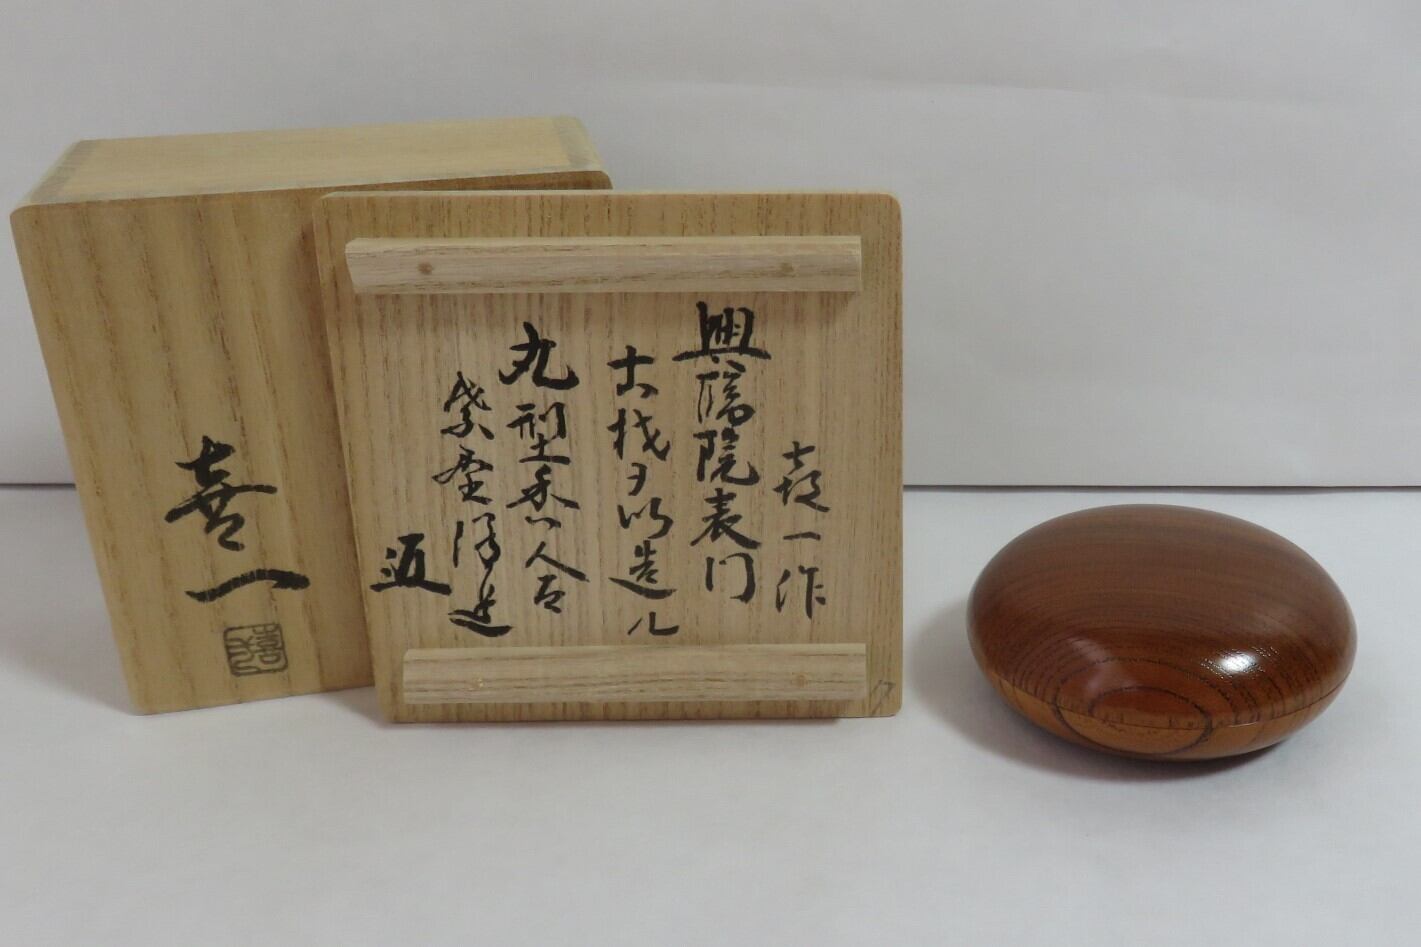 喜一作
興臨院表門
古材ヲ以造ル
丸型香合
紫野
喜一